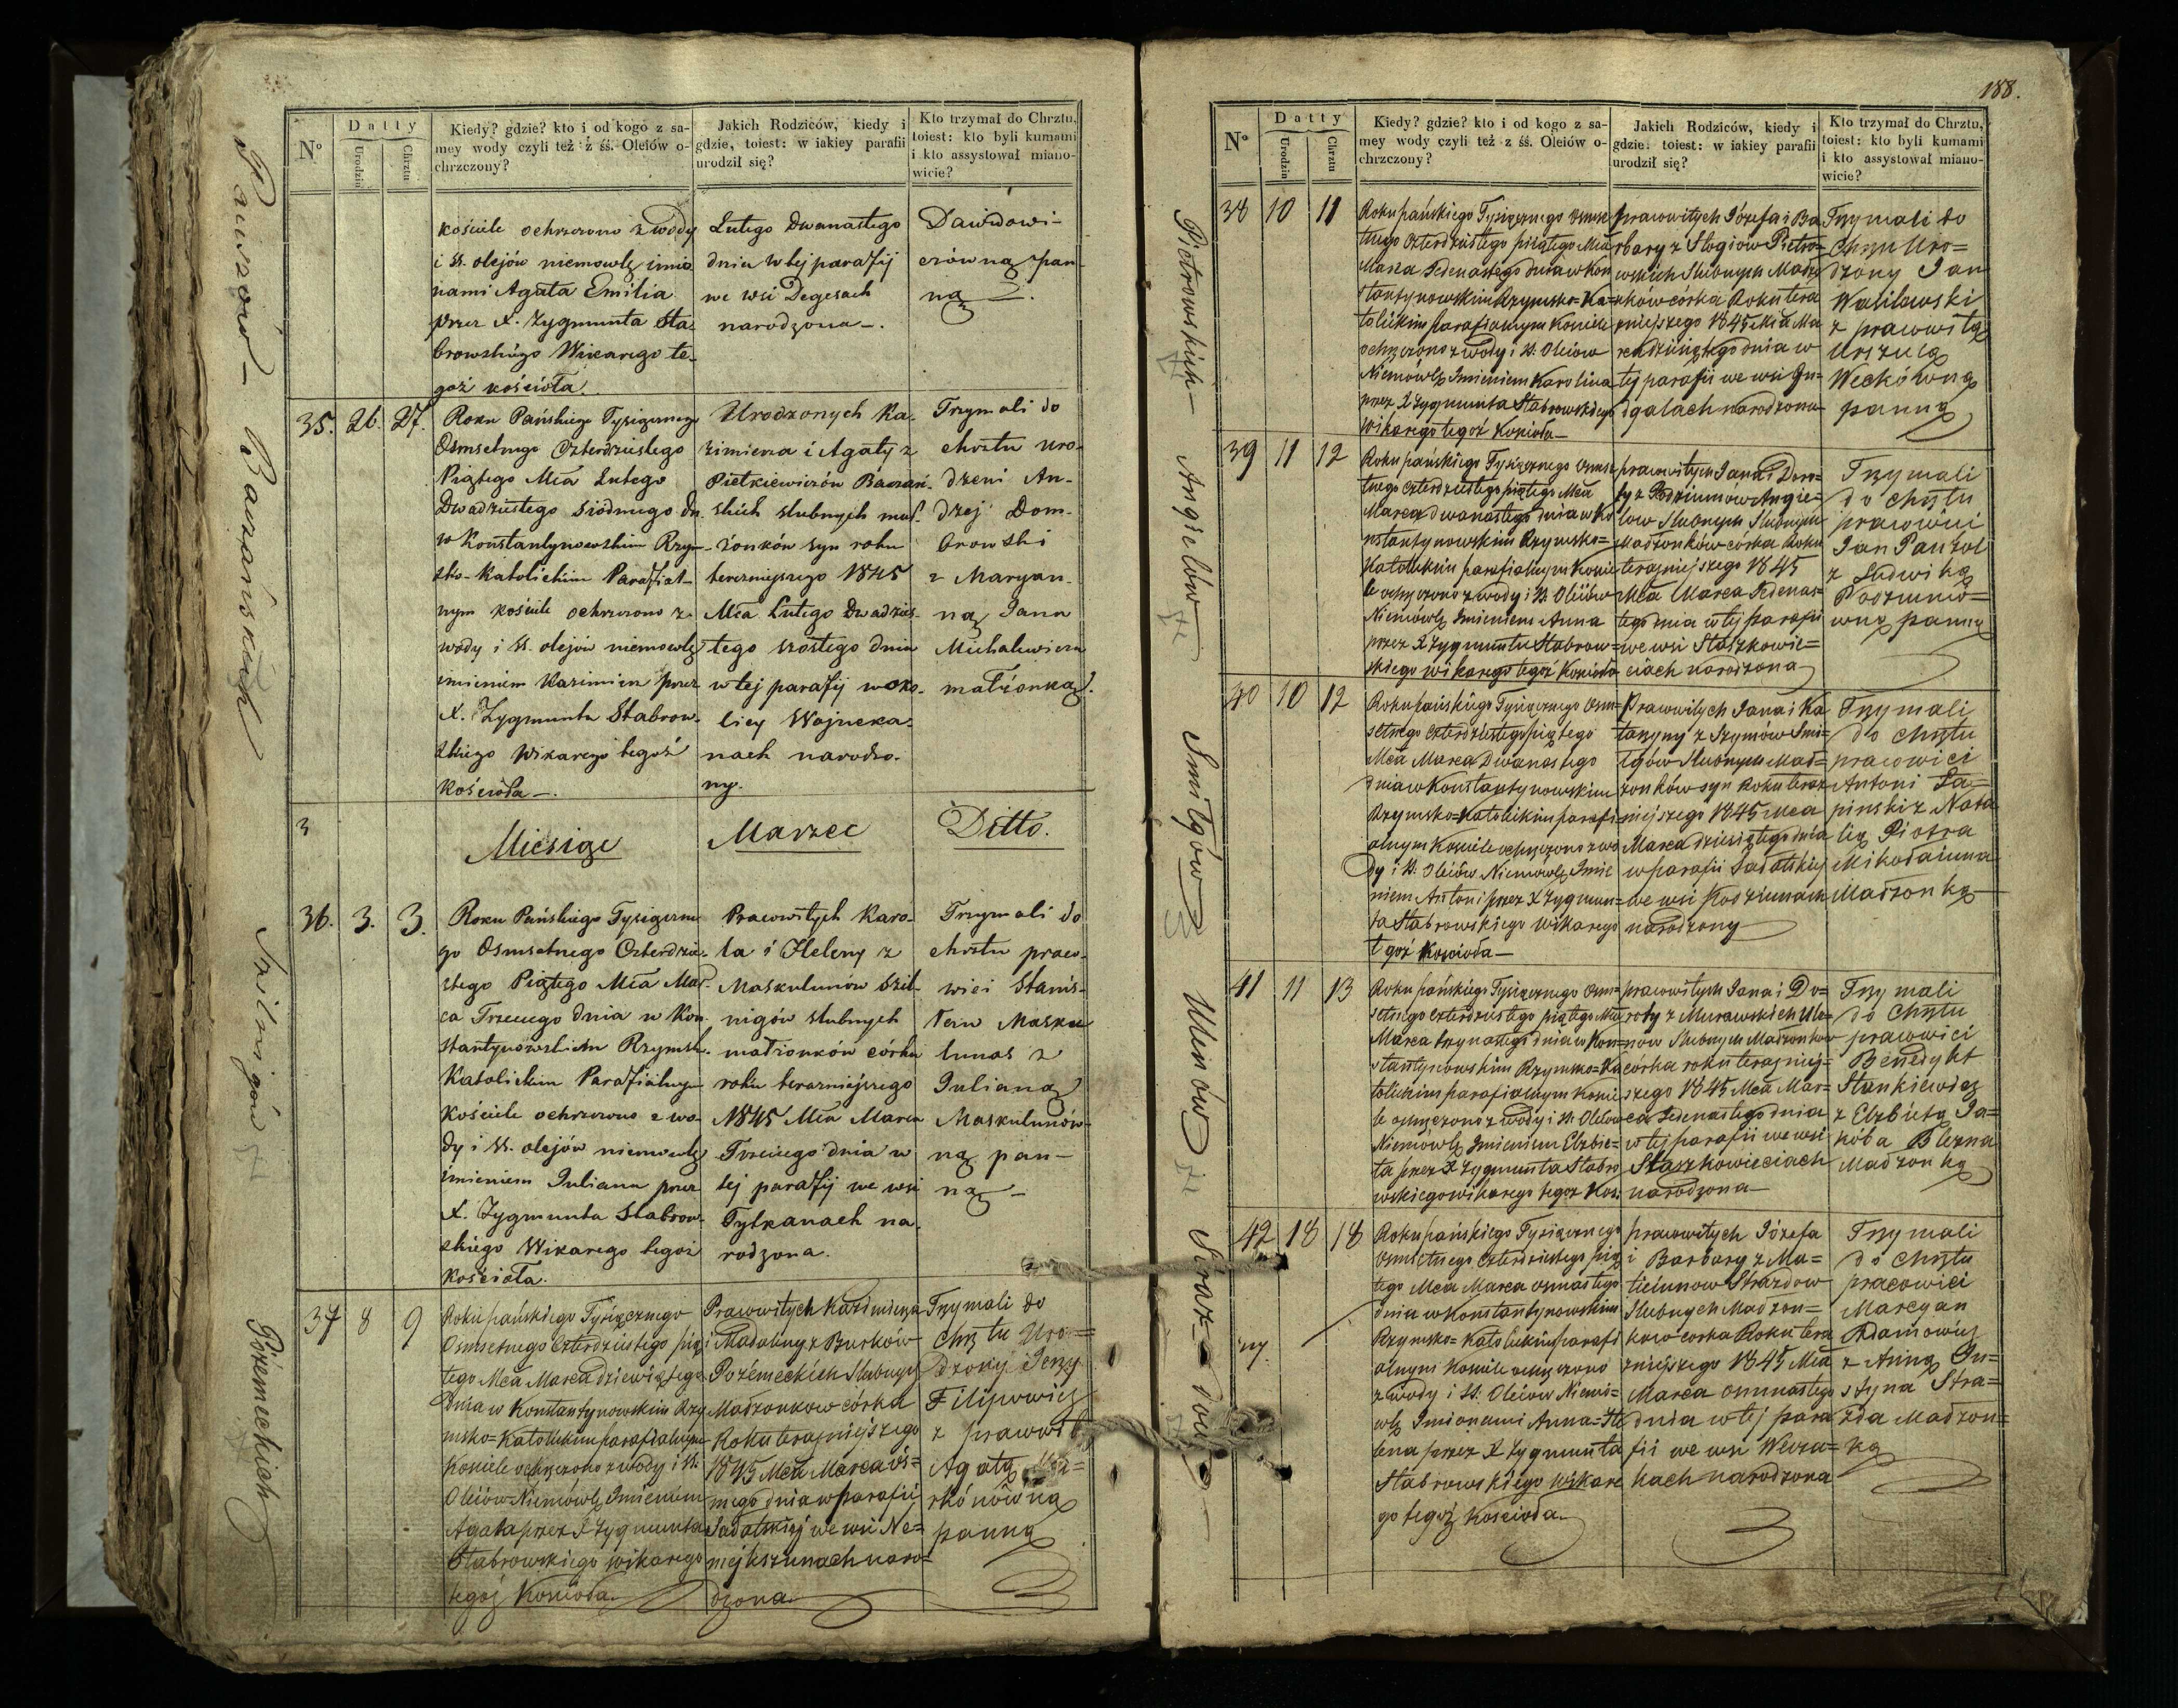 188.
Nº
Datty
Urodzin
Chrztu
Kiedy? gdzie? kto i od kogo z sa-
mey wody czyli też z śś. Oleiów o-
chrzczony?
Jakich Rodziców, kiedy i
gdzie, toiest: w iakiey parafii
urodził się?
Kto trzymał do Chrztu,
toiest: kto byli kumami
i kto assystował miano-
wicie?
kościele ochrzczono z wody
i SS. olejów niemowlę imio
nami Agata Emilia
przez X. Zygmunta Sta-
browskiego Wikarego te-
goż kościoła.
Lutego Dwunastego
dnia w tej parafij
we wsi Degesach
narodzona.
Dawidowi-
czówną pan-
ną
Baczańskich
35. 26. 27.
Roku Pańskiego Tysiącznego
Osmsetnego Czterdziestego
Piątego Mca Lutego
Dwadziestego siódmego dn.
w Konstantynowskim Rzym-
sko-Katolickim Parafial-
nym kościele ochrzczono z
wody i SS. olejów niemowlę
imieniem Kazimierz przez
X. Zygmunta Stabrow-
skiego Wikarego tegoż
Kościoła.
Urodzonych Ka-
zimierza i Agaty z
Pietkiewiczów Baczań-
skich slubnych mał-
żonków syn roku
terazniejszego 1845
Mca Lutego Dwadzies-
tego szostego dnia
w tej parafij w oko-
licy Wojneka-
nach narodzo-
ny.
Trzymali do
chrztu uro-
dzeni An-
drzej Dom-
browski
z Maryan-
ną Jana
Michalewicza
małżonką.
3
Miesiąc
Marzec
Ditto.
36. 3. 3.
Roku Pańskiego Tysiączne
go Osmsetnego Czterdzie-
stego Piątego Mca Mar-
ca Trzeciego dnia w Kon-
stantynowskim Rzymsk.
Katolickim Parafialnym
Kościele ochrzczono z wo-
dy i SS. olejów niemowlę
imieniem Juliana przez
X. Zygmunta Stabrow-
skiego Wikarego tegoż
Kościoła.
Pracowitych Karo-
la i Heleny z
Maskulunów Szil-
nigów slubnych
małżonków córka
roku terazniejszego
1845 Mca Marca
Trzeciego dnia w
tej parafij we wsi
Tytkanach na-
rodzona.
Trzymali do
chrztu praco-
wici Stanis-
ław Masku
lunas z
Julianą
Maskulunów-
ną pan-
ną
Pożemieckich
37 8 9
Roku pańskiego Tysiącznego
Osmsetnego Czterdziestego pią
tego Mca Marca dziewiątego
dnia w Konstantynowskim Rzy
msko=Katolickim parafialnym
Kosciele ochrzczono z wody i SS.
Oleiów Niemowlę Imieniem
Agata przez X Zygmunta
Stabrowskiego wikarego
tegoż Kościoła
Pracowitych Kazimierza
i Madaleny z Burków
Pożemeckich Slubnych
Madzonkow córka
Roku terazniejszego
1845 Mca Marca os=
mego dnia w parafii
Sadalskiej we wsi Ne=
mejkszunach naro=
dzona
Trzymali do
Chrztu Uro=
dzony Jerzy
Filipowicz
z pracowit
Agatą
rkónówną
panną
Nº
Datty
Urodzin
Chrztu
Kiedy? gdzie? kto i od kogo z sa-
mey wody czyli też z śś. Oleiów o-
chrzczony?
Jakich Rodziców, kiedy i
gdzie, toiest: w iakiey parafii
urodził się?
Kto trzymał do Chrztu,
toiest: kto byli kumami
i kto assystował miano-
wicie?
Piotrowskich
38 10 11
Roku pańskiego Tysiącznego osmse
tnego czterdziestego piątego Mca
Marca Jedenastego dnia w Kon
stantynowskim Rzymsko=Ka=
tolickim parafialnym Kościele
ochrzczono z wody i SS. Oleiow
Niemowlę Imieniem Karolina
przez X Zygmunta Stabrowskiego
wikarego tegoż Kościoła
pracowitych Józefa i Ba
rbary z Stogiow Pietro=
wskich Slubnych Madzo
nkow córka Roku tera
zniejszego 1845 Mca Ma
rca dziesiątego dnia w
tej parafii we wsi
dgalach narodzona
Trzymali do
Chrztu Uro=
dzony Jan
Wasilewski
z pracowitą
Urszulą
Weckówną
panną
Angielów
39 11 12
Roku pańskiego Tysiącznego osmse
tnego czterdziestego piątego Mca
Marca dwanastego dnia w Ko
nstantynowskim Rzymsko=
Katolickim parafialnym Koscie
le ochrzczono z wody i SS. Oleiów
Niemówlę Imieniem Anna
przez X Zygmunta Stabrow=
skiego wikarego tegoż Kościoła
pracowitych Jana i Doro=
ty z Podziunow Angie=
low Slubnych Slubnych
Madzonków córka Roku
terazniejszego 1845
Mca Marca Jedenas=
tego dnia w tej parafii
we wsi Staszkowie=
ciach narodzona
Trzymali
do chrztu
pracowici
Jan Panzol
z Ludwiką
Podziuno=
wną panną
Smilgów
40 10 12
Roku pańskiego Tysiącznego osm=
setnego czterdziestego piątego
Mca Marca Dwanastego
dnia w Konstantynowskim
Rzymsko=Katolickim parafi
alnym Kosciele ochrzczono z wo
dy i SS. Oleiów Niemowlę Imie
niem Antoni przez X Zygmun=
ta Stabrowskiego wikarego
tegoż Kościoła
Pracowitych Jana i Ka
tarzyny z Szymów Smi=
lgów Slubnych Mad=
zonków syn Roku teraz
niejszego 1845 Mca
Marca dziesiątego dnia
w parafii Sadalskiej
we wsi Kosziunach
narodzony
Trzymali
do chrztu
pracowici
Antoni La=
pinski z Nata
lią Piotra
Mikodaiuna
Madzonką
Ulinów
41 11 13
Roku pańskiego Tysiącznego osm=
setnego czterdziestego piątego Mca
Marca trzynastego dnia w Kon=
stantynowskim Rzymsko=Ka
tolickim parafialnym Koscie
le ochrzczono z wody i SS. Oleiow
Niemówlę Imieniem Elzbie=
ta przez X Zygmunta Stabro
wskiego wikarego tegoz Kos:
pracowitych Jana i Do=
roty z Murawskich Uli=
now Slubnych Madzonkow
córka roku teraźniej=
szego 1845 Mca Mar=
ca Jedenastego dnia
w tej parafii we wsi
Staszkowieciach
narodzona
Trzymali
do chrztu
pracowici
Benedykt
Stankiewicz
z Elzbietą Ja=
kóba Blizna
Madzonką
42 18 18
Roku pańskiego Tysiącznego
osmsetnego czterdziestego pią
tego Mca Marca osmnastego
dnia w Konstantynowskim
Rzymsko=Katolickim parafi
alnym Kosciele ochrzczono
z wody i SS. Oleiow Niemo=
wlę Imionami Anna=He
lena przez X Zygmunta
Stabrowskiego wikare
go tegoż Kościoła
pracowitych Józefa
i Barbary z Ma=
ticiunow Strazdow
Slubnych Madzon=
kow corka Roku tera
zniejszego 1845 Mca
Marca osmnastego
dnia w tej para
fii we wsi Wewia=
kach narodzona
Trzymali
do chrztu
pracowici
Marcyan
Adamowicz
z Anną Ju=
styna Stra=
zda Madzon=
ką